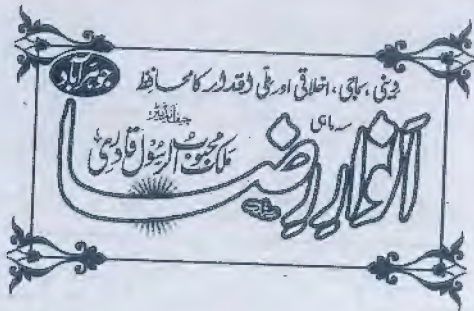 جوہر آباد
دینی، سماجی، اخلاقی اور ملی اقدار کا محافظ
سہ ماہی
چیف ایڈیٹر
ملک محبوب الرسول قادری
انوارِ رضا